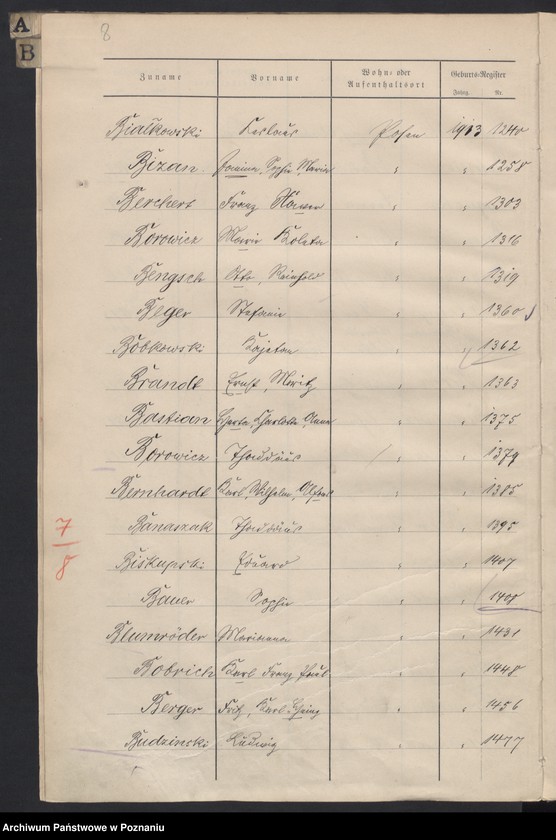 A
B
8
Zuname Vorname Wohn- oder Aufenthaltsort Geburts-Register
Jahrg. Nr.
Białkowski Posen 1913 1240
Bizan Janina, Sophie, Maria " " 1258
Berchert Franz " " 1303
Borowicz Maria " " 1316
Bengsch Otto, Reinhold " " 1319
Beger Stefanie " " 1360
Bobkowski Kajetan " " 1362
Brandt Ernst, Moritz " " 1363
Bastian Herta, Charlotte, Anna " " 1375
Borowicz Thaddäus " " 1379
Bernhardt Karl, Wilhelm, Alfons " " 1385
Banaszak Thaddäus " " 1395
Biskupski Eduard " " 1407
Bauer Sophie " "
Blumröder Marianna " " 1431
Bobrich Karl Franz Paul " " 1448
Berger Fritz, Karl Heinz " " 1456
Budzinski Ludwig " " 1477
7
8
Archiwum Państwowe w Poznaniu